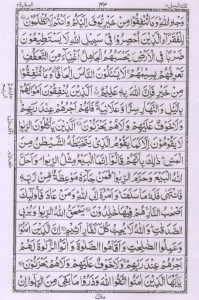 تلك الرسل ٣ ٤٣ البقرة ٢
وَجْهِ اللّٰهِ وَمَا تُنْفِقُوْا مِنْ خَيْرٍ يُّوَفَّ اِلَيْكُمْ وَاَنْتُمْ لَا تُظْلَمُوْنَ
لِلْفُقَرَآءِ الَّذِيْنَ اُحْصِرُوْا فِيْ سَبِيْلِ اللّٰهِ لَا يَسْتَطِيْعُوْنَ
ضَرْبًا فِي الْاَرْضِ يَحْسَبُهُمُ الْجَاهِلُ اَغْنِيَآءَ مِنَ التَّعَفُّفِ
تَعْرِفُهُمْ بِسِيْمٰهُمْ لَا يَسْـَٔلُوْنَ النَّاسَ اِلْحَافًا وَمَا تُنْفِقُوْا مِنْ
خَيْرٍ فَاِنَّ اللّٰهَ بِهٖ عَلِيْمٌ اَلَّذِيْنَ يُنْفِقُوْنَ اَمْوَالَهُمْ
بِالَّيْلِ وَالنَّهَارِ سِرًّا وَّعَلَانِيَةً فَلَهُمْ اَجْرُهُمْ عِنْدَ رَبِّهِمْ
وَلَا خَوْفٌ عَلَيْهِمْ وَلَا هُمْ يَحْزَنُوْنَ اَلَّذِيْنَ يَاْكُلُوْنَ الرِّبٰوا
لَا يَقُوْمُوْنَ اِلَّا كَمَا يَقُوْمُ الَّذِيْ يَتَخَبَّطُهُ الشَّيْطٰنُ مِنَ
الْمَسِّ ذٰلِكَ بِاَنَّهُمْ قَالُوْٓا اِنَّمَا الْبَيْعُ مِثْلُ الرِّبٰوا وَاَحَلَّ
اللّٰهُ الْبَيْعَ وَحَرَّمَ الرِّبٰوا فَمَنْ جَآءَهٗ مَوْعِظَةٌ مِّنْ رَّبِّهٖ
فَانْتَهٰى فَلَهٗ مَا سَلَفَ وَاَمْرُهٗٓ اِلَى اللّٰهِ وَمَنْ عَادَ فَاُولٰٓئِكَ
اَصْحٰبُ النَّارِ هُمْ فِيْهَا خٰلِدُوْنَ يَمْحَقُ اللّٰهُ الرِّبٰوا وَيُرْبِي
الصَّدَقٰتِ وَاللّٰهُ لَا يُحِبُّ كُلَّ كَفَّارٍ اَثِيْمٍ اِنَّ الَّذِيْنَ اٰمَنُوْا
وَعَمِلُوا الصّٰلِحٰتِ وَاَقَامُوا الصَّلٰوةَ وَاٰتَوُا الزَّكٰوةَ لَهُمْ
اَجْرُهُمْ عِنْدَ رَبِّهِمْ وَلَا خَوْفٌ عَلَيْهِمْ وَلَا هُمْ يَحْزَنُوْنَ
يٰٓاَيُّهَا الَّذِيْنَ اٰمَنُوا اتَّقُوا اللّٰهَ وَذَرُوْا مَا بَقِيَ مِنَ الرِّبٰٓوا اِنْ